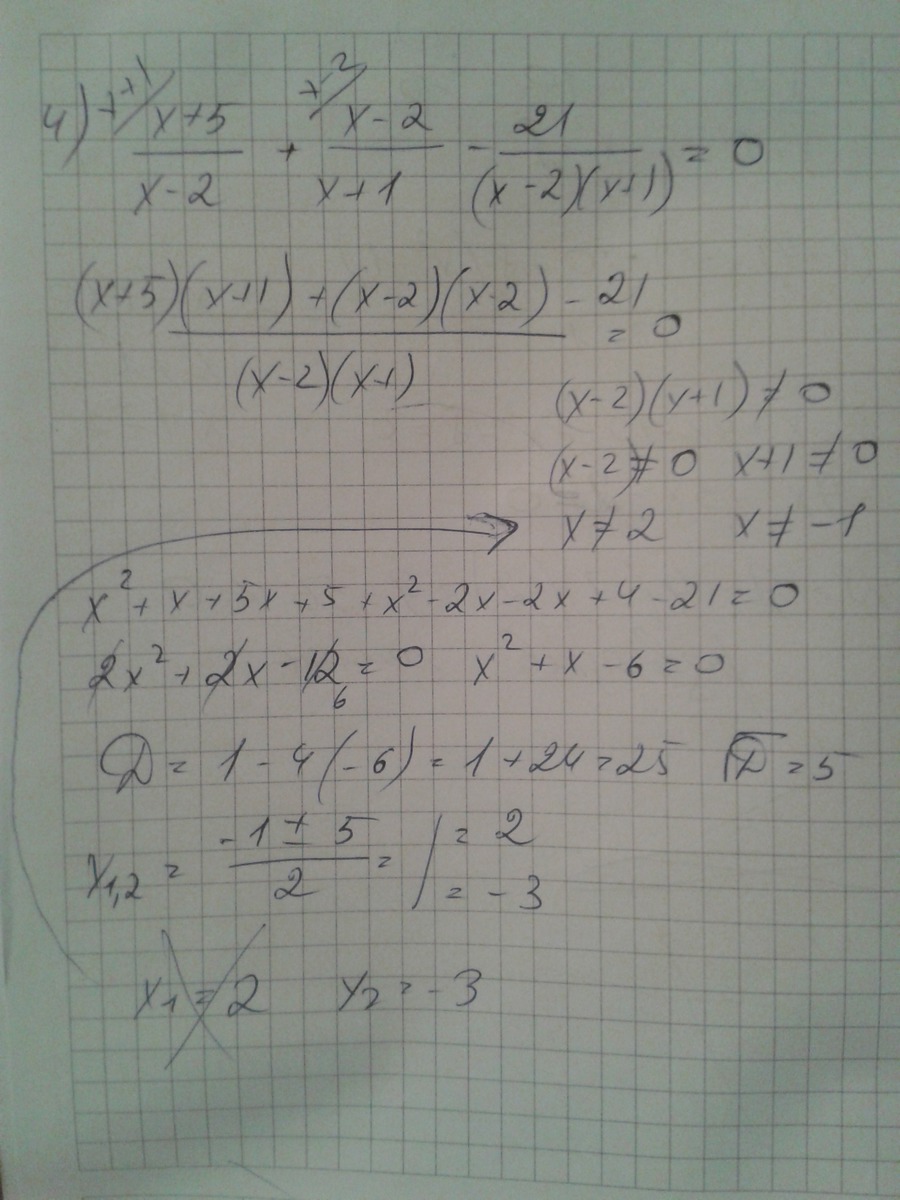 4) x+1/ (x+5)/(x-2) + x-2/ (x-2)/(x+1) - 21/((x-2)(x+1)) = 0
((x+5)(x+1) + (x-2)(x-2) - 21)/((x-2)(x+1)) = 0
(x-2)(x+1) ≠ 0
(x-2) ≠ 0 x+1 ≠ 0
x ≠ 2 x ≠ -1
x² + x + 5x + 5 + x² - 2x - 2x + 4 - 21 = 0
2x² + 2x - 12 = 0 x² + x - 6 = 0
6
D = 1 - 4(-6) = 1 + 24 = 25 √D = 5
x1,2 = (-1 ± 5)/2 = | = 2
= -3
x1 = 2 x2 = -3